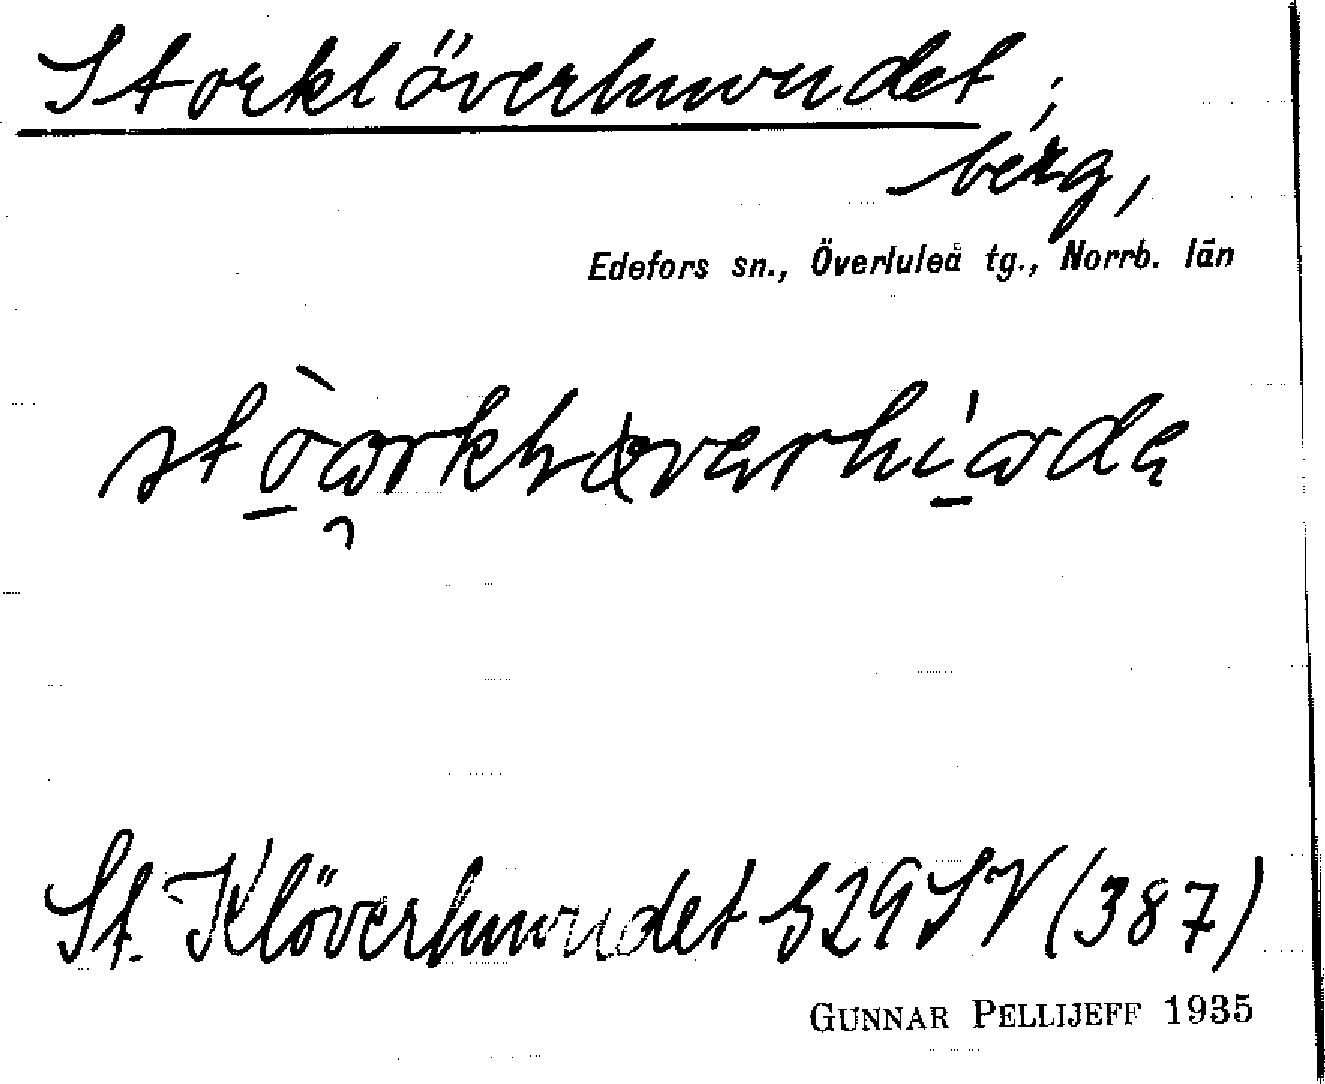 Storklöverhuvudet;
berg,
Edefors sn., Överluleå tg., Norrb. län
St. Klöverhuvudet 529SV (387)
GUNNAR PELLIJEFF 1935